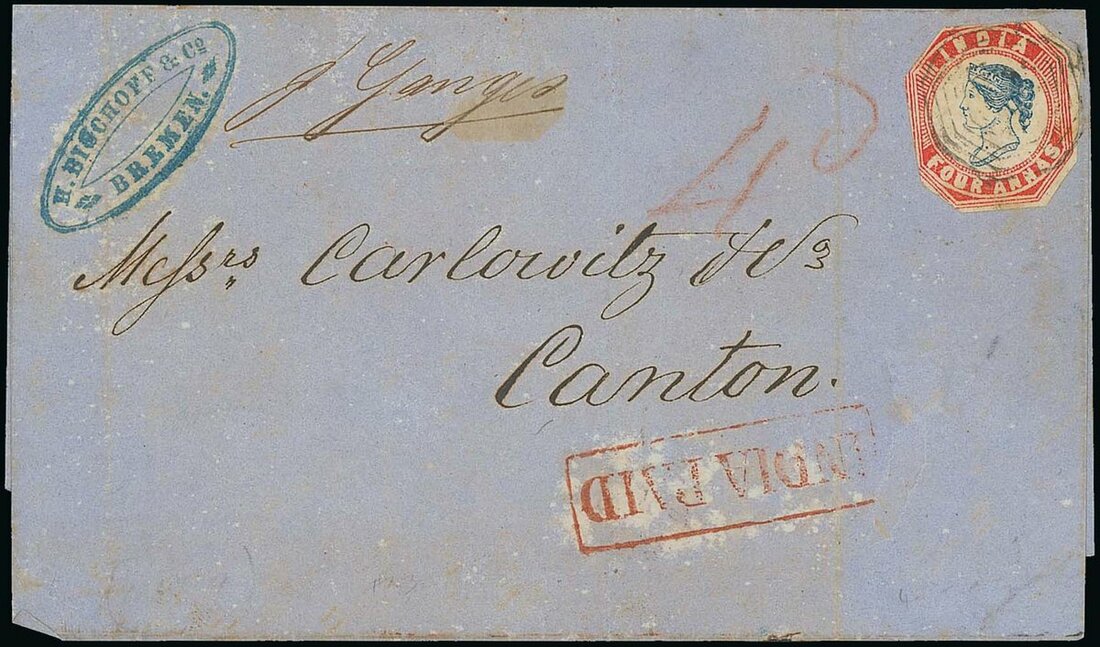 H. BISCHOFF & Co
BREMEN.
p Ganges
INDIA
FOUR ANNAS
4d
Messrs Carlowitz & Co
Canton.
INDIA PAID